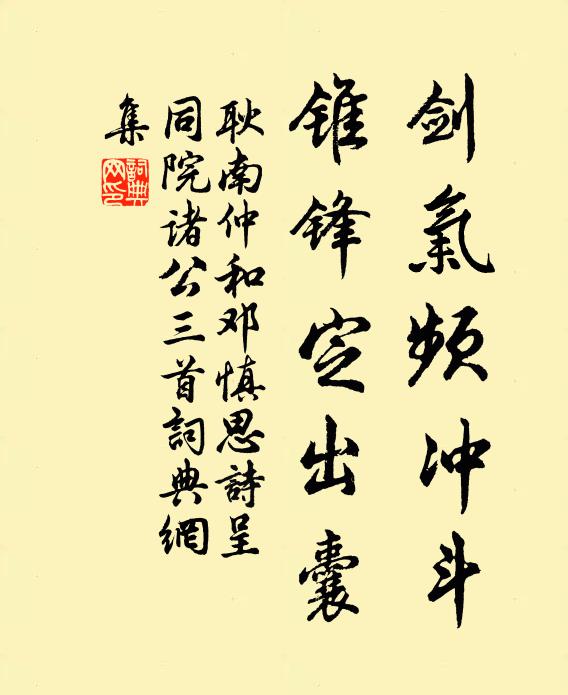 剑氣频冲斗
锥锋定出囊
耿南仲和邓慎思詩呈
同院诸公三首詞典網
集
詞典
网印